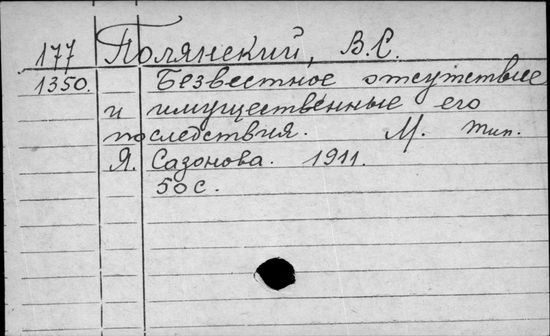 177 Полянский, В.С.
1350. Безвестное отсутствие
и имущественные его
последствия. М. тип.
Я. Сазонова. 1911.
50с.